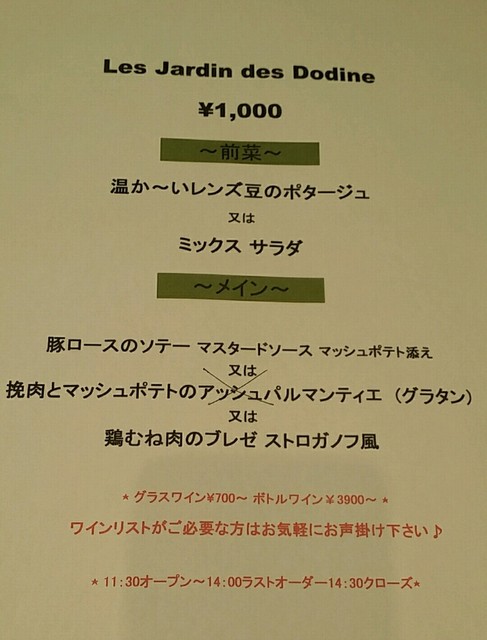 Les Jardin des Dodine
¥1,000
～前菜～
温か～いレンズ豆のポタージュ
又は
ミックス サラダ
～メイン～
豚ロースのソテー マスタードソース マッシュポテト添え
又は
挽肉とマッシュポテトのアッシュパルマンティエ（グラタン）
又は
鶏むね肉のブレゼ ストロガノフ風
* グラスワイン¥700～ ボトルワイン￥3900～ *
ワインリストがご必要な方はお気軽にお声掛け下さい♪
* 11:30オープン～14:00ラストオーダー14:30クローズ*